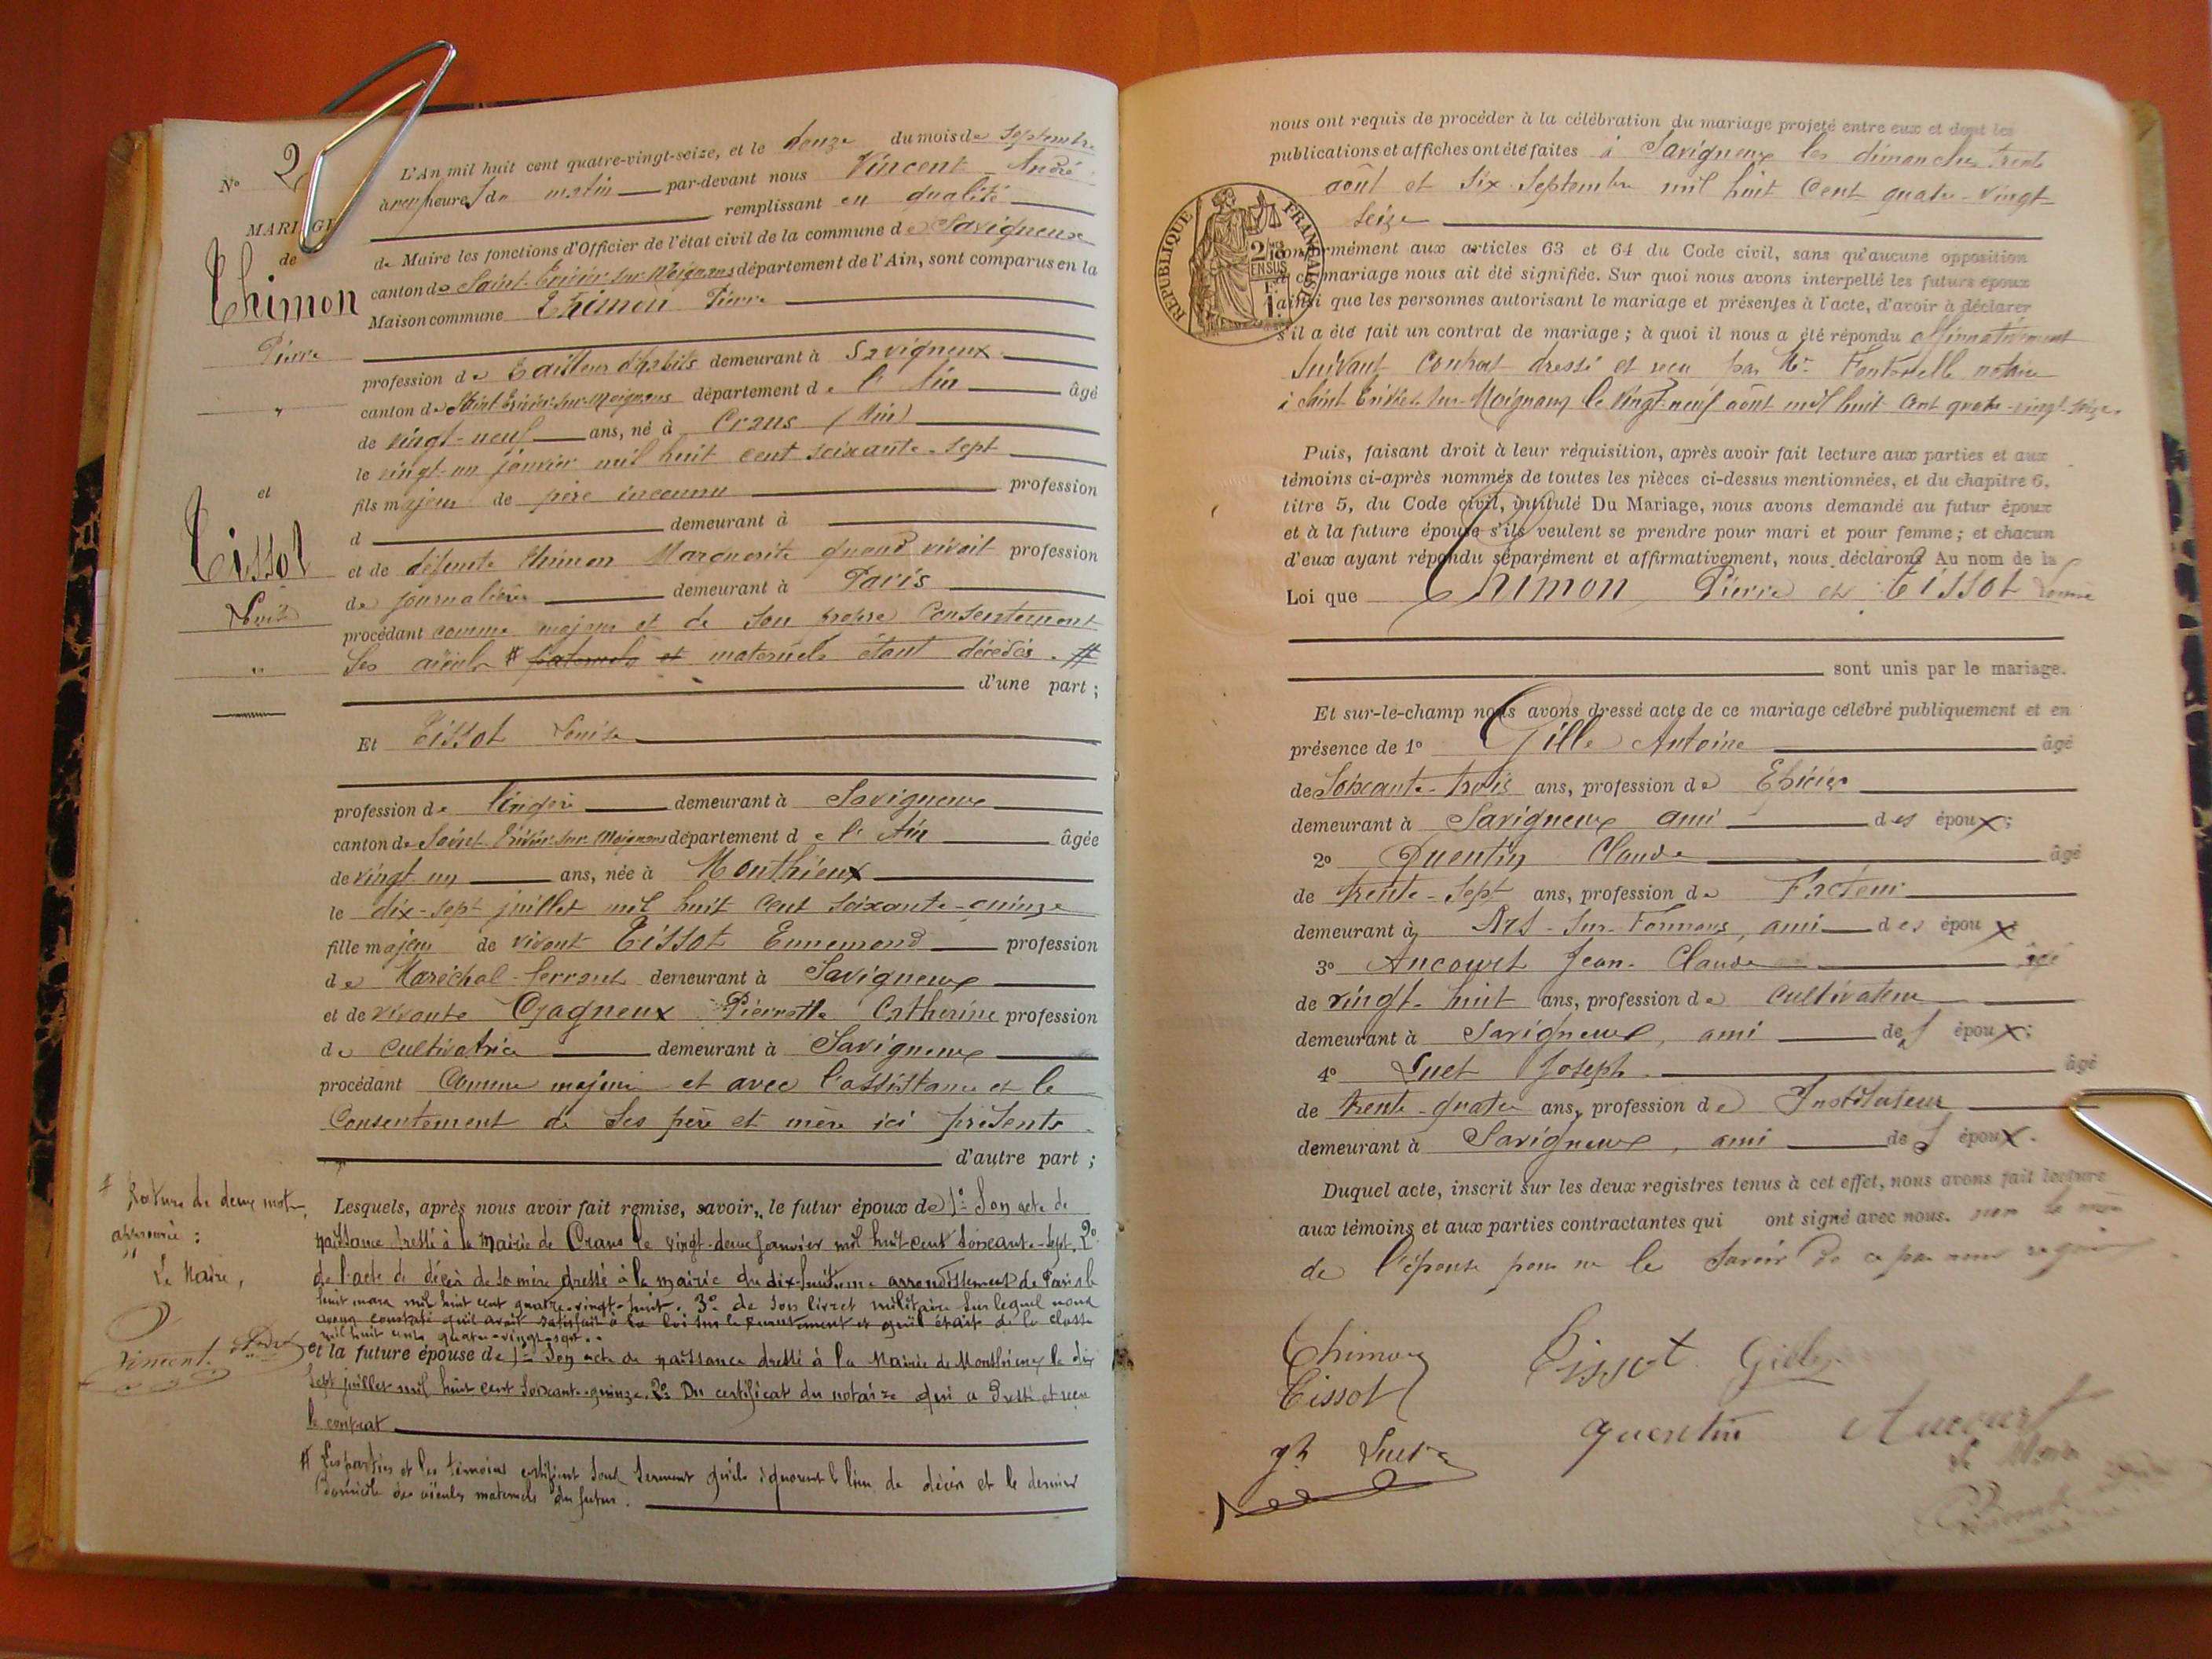 N° 2
MARIAGE
de
Thimon
Pierre
et
Tissot
Louise
L'An mil huit cent quatre-vingt-seize, et le douze du mois de septembre
à heures du matin par-devant nous Vincent André
remplissant en qualité
de Maire les fonctions d'Officier de l'état civil de la commune de Savigneux
canton de Saint-Trivier-sur-Moignans département de l'Ain, sont comparus en la
Maison commune Thimon Pierre
profession de tailleur d'habits demeurant à Savigneux
canton de Saint-Trivier-sur-Moignans département de l'Ain âgé
de vingt-neuf ans, né à Crans (Ain)
le vingt-un janvier mil huit cent soixante-sept
fils majeur de père inconnu profession
d demeurant à
et de défunte Thimon Marguerite quand vivait profession
de journalière demeurant à Paris
procédant comme majeur et de son propre consentement
ses aïeuls # paternels et maternels étant décédés. #
d'une part ;
Et Tissot Louise
profession de lingère demeurant à Savigneux
canton de Saint-Trivier-sur-Moignans département de l'Ain âgée
de vingt-un ans, née à Monthieux
le dix-sept juillet mil huit cent soixante-quinze
fille majeure de vivant Tissot Ennemond profession
de Maréchal-ferrant demeurant à Savigneux
et de vivante Gagneux Pierrette Catherine profession
de cultivatrice demeurant à Savigneux
procédant comme majeure et avec l'assistance et le
consentement de ses père et mère ici présents
d'autre part ;
# Rature de deux mots
approuvée :
Le Maire,
Vincent André
Lesquels, après nous avoir fait remise, savoir, le futur époux de 1° Son acte de
naissance dressé à la Mairie de Crans le vingt-deux janvier mil huit cent soixante-sept. 2°
de l'acte de décès de sa mère dressé à la mairie du dix-huitième arrondissement de Paris le
huit mars mil huit cent quatre-vingt-huit. 3° de son livret militaire sur lequel nous
avons constaté qu'il avait satisfait à la loi sur le recrutement et qu'il était de la classe
mil huit cent quatre-vingt-sept.
et la future épouse de 1° Son acte de naissance dressé à la Mairie de Monthieux le dix
sept juillet mil huit cent soixante-quinze. 2° Du certificat du notaire qui a dressé et reçu
le contrat
# Les parties et les témoins certifient sous serment qu'ils ignorent le lieu de décès et le dernier
domicile des aïeuls maternels du futur.
nous ont requis de procéder à la célébration du mariage projeté entre eux et dont les
publications et affiches ont été faites à Savigneux les dimanches trente
août et six septembre mil huit cent quatre-vingt
seize
RÉPUBLIQUE FRANÇAISE
conformément aux articles 63 et 64 du Code civil, sans qu'aucune opposition
ce mariage nous ait été signifiée. Sur quoi nous avons interpellé les futurs époux
ainsi que les personnes autorisant le mariage et présentes à l'acte, d'avoir à déclarer
s'il a été fait un contrat de mariage ; à quoi il nous a été répondu affirmativement
suivant contrat dressé et reçu par Me Fontenelle notaire
à Saint Trivier-sur-Moignans le vingt-neuf août mil huit cent quatre-vingt-seize.
Puis, faisant droit à leur réquisition, après avoir fait lecture aux parties et aux
témoins ci-après nommés de toutes les pièces ci-dessus mentionnées, et du chapitre 6,
titre 5, du Code civil, intitulé Du Mariage, nous avons demandé au futur époux
et à la future épouse s'ils veulent se prendre pour mari et pour femme ; et chacun
d'eux ayant répondu séparément et affirmativement, nous déclarons Au nom de la
Loi que Thimon Pierre et Tissot Louise
sont unis par le mariage.
Et sur-le-champ nous avons dressé acte de ce mariage célébré publiquement et en
présence de 1° Gille Antoine âgé
de soixante-trois ans, profession de Epicier
demeurant à Savigneux ami des époux ;
2° Quentin Claude âgé
de trente-sept ans, profession de Facteur
demeurant à Ars-sur-Formans, ami des époux
3° Aucourt Jean-Claude âgé
de vingt-huit ans, profession de cultivateur
demeurant à Savigneux, ami des époux ;
4° Luet Joseph âgé
de trente-quatre ans, profession de Instituteur
demeurant à Savigneux, ami des époux.
Duquel acte, inscrit sur les deux registres tenus à cet effet, nous avons fait lecture
aux témoins et aux parties contractantes qui ont signé avec nous. non la mère
de l'épouse pour ne le savoir de ce par nous requise
Thimon Tissot Gille
Tissot
Quentin Aucourt
Luet
Le Maire
Vincent André